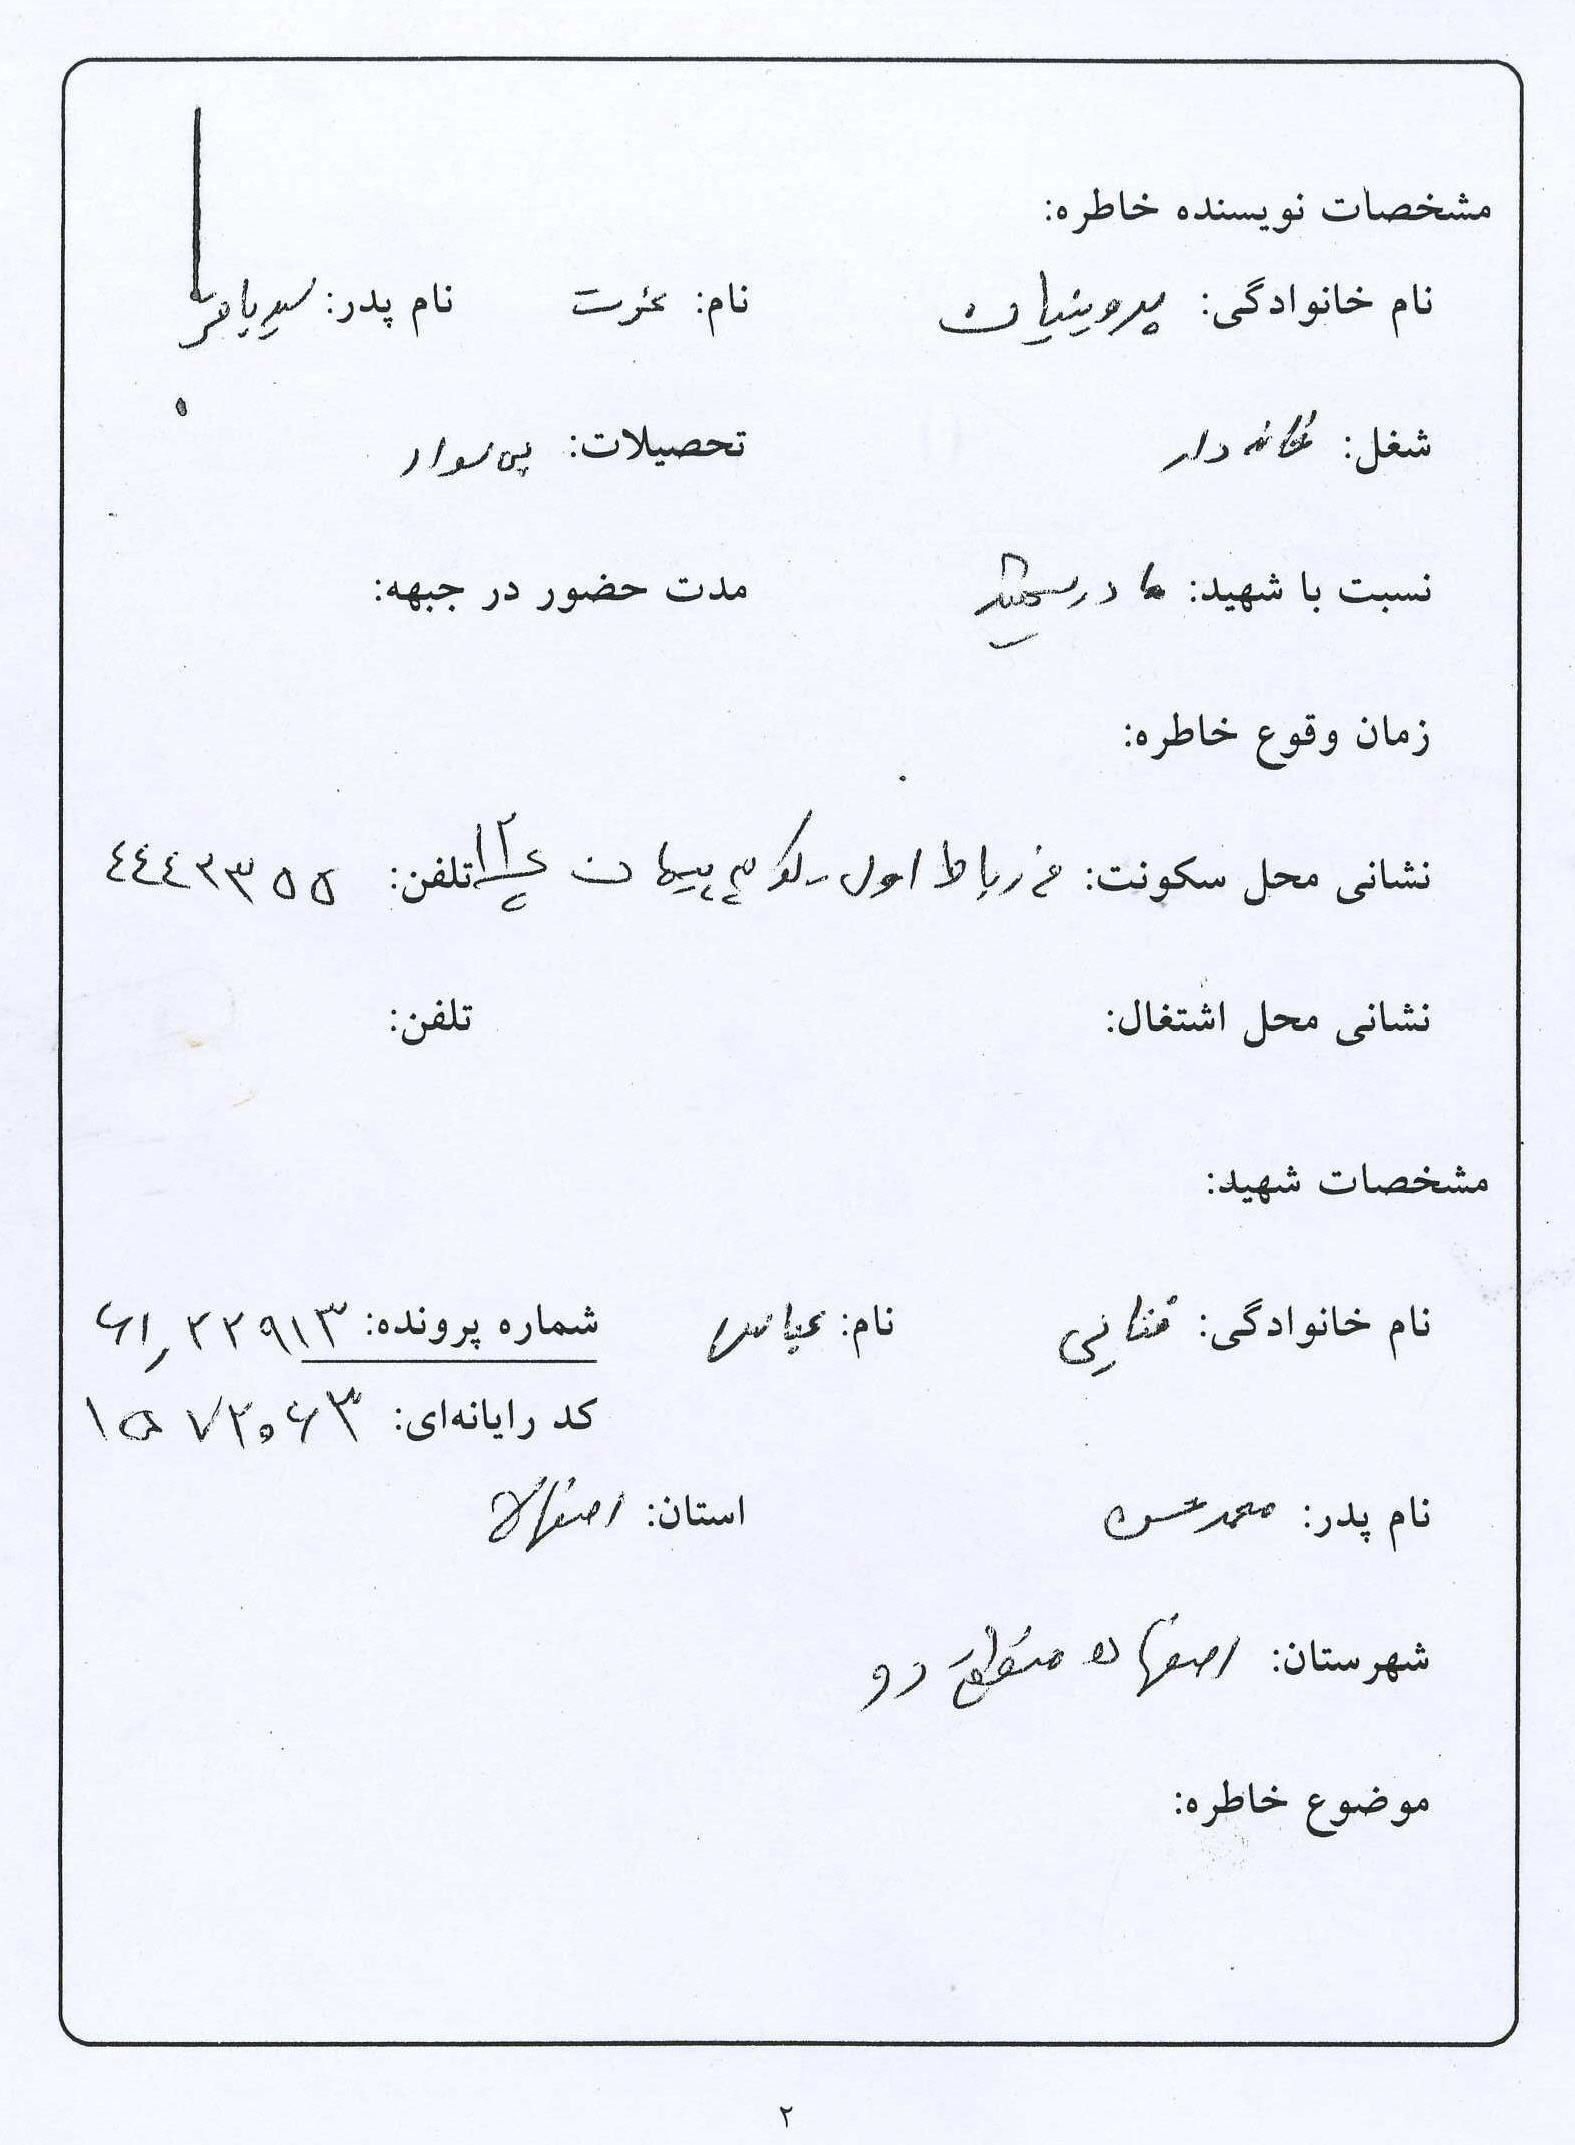 مشخصات نویسنده خاطره:
نام خانوادگی: پروینیان نام: عزت نام پدر: سیدباقر
شغل: خانه دار تحصیلات: بی سواد
نسبت با شهید: مادر شهید مدت حضور در جبهه:
زمان وقوع خاطره:
نشانی محل سکونت: خ رباط اول پیمان تلفن: ٤٤٤٢٣٥٥
نشانی محل اشتغال: تلفن:
مشخصات شهید:
نام خانوادگی: قنائی نام: عباس شماره پرونده: ۶۱٫۲۲۹۱۳
کد رایانه‌ای: ۱۵۷۲۰۶۳
نام پدر: محمدحسن استان: اصفهان
شهرستان: اصفهان منطقه دو
موضوع خاطره:
۲